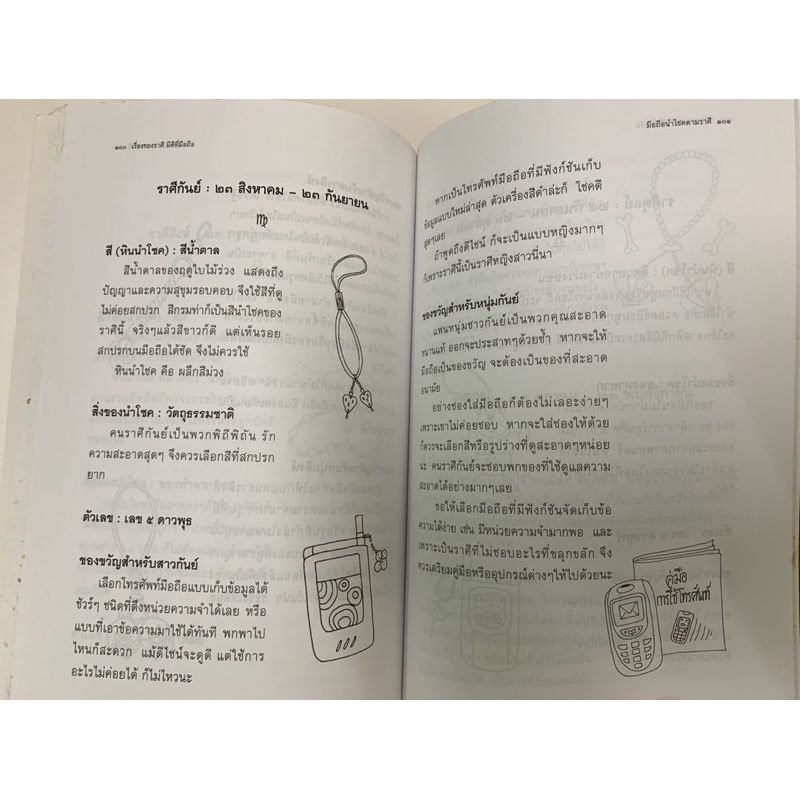 ๑๐๐ เรื่องของราศี มีดีที่มือถือ
ราศีกันย์ : ๒๓ สิงหาคม – ๒๓ กันยายน
สี (หินนำโชค) : สีน้ำตาล
สีน้ำตาลของฤดูใบไม้ร่วง แสดงถึง
ปัญญาและความสุขุมรอบคอบ จึงใช้สีที่ดู
ไม่ค่อยสกปรก สีกรมท่าก็เป็นสีนำโชคของ
ราศีนี้ จริงๆแล้วสีขาวก็ดี แต่เห็นรอย
สกปรกบนมือถือได้ชัด จึงไม่ควรใช้
หินนำโชค คือ ผลึกสีม่วง
สิ่งของนำโชค : วัตถุธรรมชาติ
คนราศีกันย์เป็นพวกพิถีพิถัน รัก
ความสะอาดสุดๆ จึงควรเลือกสีที่สกปรก
ยาก
ตัวเลข : เลข ๕ ดาวพุธ
ของขวัญสำหรับสาวกันย์
เลือกโทรศัพท์มือถือแบบเก็บข้อมูลได้
ชัวร์ๆ ชนิดที่ดึงหน่วยความจำได้เลย หรือ
แบบที่เอาข้อความมาใช้ได้ทันที พกพาไป
ไหนก็สะดวก แม้ดีไซน์จะดูดี แต่ใช้การ
อะไรไม่ค่อยได้ ก็ไม่ไหวนะ
มือถือนำโชคตามราศี ๑๐๑
หากเป็นโทรศัพท์มือถือที่มีฟังก์ชันเก็บ
ข้อมูลแบบใหม่ล่าสุด ตัวเครื่องสีดำล่ะก็ โชคดี
สุดๆเลย
ถ้าพูดถึงดีไซน์ ก็จะเป็นแบบหญิงมากๆ
ก็เพราะราศีนี้เป็นราศีหญิงสาวนี่นา
ของขวัญสำหรับหนุ่มกันย์
แฟนหนุ่มชาวกันย์เป็นพวกคุณสะอาด
ขนานแท้ ออกจะประสาทๆด้วยซ้ำ หากจะให้
มือถือเป็นของขวัญ จะต้องเป็นของที่สะอาด
อนามัย
อย่างซองใส่มือถือก็ต้องไม่เลอะง่ายๆ
เพราะเขาไม่ค่อยชอบ หากจะใส่ซองให้ด้วย
ก็ควรจะเลือกสีหรือรูปร่างที่ดูสะอาดๆหน่อย
นะ คนราศีกันย์จะชอบพกของที่ใช้ดูแลความ
สะอาดได้อย่างมากๆเลย
ขอให้เลือกมือถือที่มีฟังก์ชันจัดเก็บข้อ
ความได้ง่าย เช่น มีหน่วยความจำมากพอ และ
เพราะเป็นราศีที่ไม่ชอบอะไรที่ขลุกขลัก จึง
ควรเตรียมคู่มือหรืออุปกรณ์ต่างๆให้ไปด้วยนะ
คู่มือ
การใช้โทรศัพท์